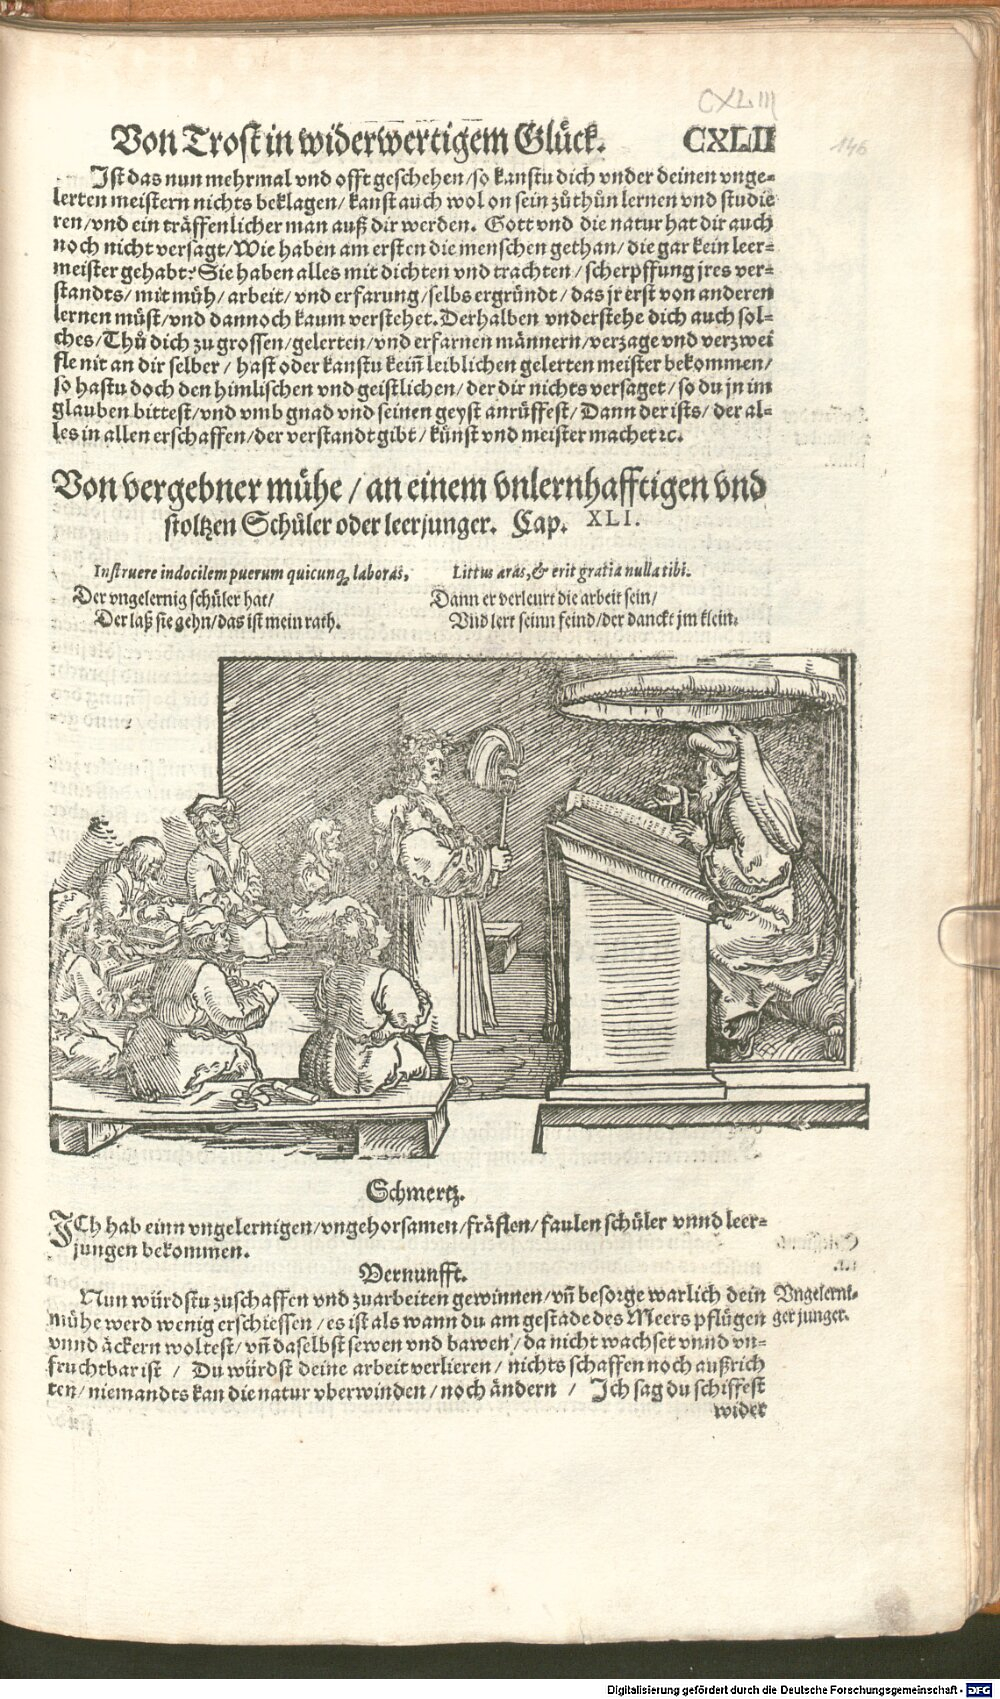 CXLIII
Von Trost in widerwertigem Glück. CXLII
146
Ist das nun mehrmal vnd offt geschehen/so kanstu dich vnder deinen vnge-
lerten meistern nichts beklagen/kanst auch wol on sein zůthůn lernen vnd studie
ren/vnd ein träffenlicher man auß dir werden. Gott vnd die natur hat dir auch
noch nicht versagt/Wie haben am ersten die menschen gethan/die gar kein leer-
meister gehabt? Sie haben alles mit dichten vnd trachten/scherpffung jres ver-
standts/mit müh/arbeit/vnd erfarung/selbs ergründt/das jr erst von anderen
lernen müst/vnd dannoch kaum verstehet. Derhalben vnderstehe dich auch sol-
ches/Thů dich zu grossen/gelerten/vnd erfarnen männern/verzage vnd verzwei
fle nit an dir selber/hast oder kanstu keiñ leiblichen gelerten meister bekommen/
so hastu doch den himlischen vnd geistlichen/der dir nichts versaget/so du jn im
glauben bittest/vnd vmb gnad vnd seinen geyst anrüffest/Dann der ists/der al-
les in allen erschaffen/der verstandt gibt/künst vnd meister machet ꝛc.
Von vergebner mühe/an einem vnlernhafftigen vnd
stoltzen Schüler oder leerjunger. Cap. XLI.
Instruere indocilem puerum quicunq; laboras,
Littus aras, & erit gratia nulla tibi.
Der vngelernig schüler hat/
Der laß sie gehn/das ist mein rath.
Dann er verleurt die arbeit sein/
Vnd lert seinn feind/der danckt jm klein.
Schmertz.
ICh hab einn vngelernigen/vngehorsamen/fräflen/faulen schüler vnnd leer-
jungen bekommen.
Vernunfft.
Nun würdstu zuschaffen vnd zuarbeiten gewinnen/vñ besorge warlich dein
mühe werd wenig erschiessen/es ist als wann du am gestade des Meers pflügen
vnnd äckern woltest/vñ daselbst sewen vnd bawen/da nicht wachset vnnd vn-
fruchtbar ist/Du würdst deine arbeit verlieren/nichts schaffen noch außrich
ten/niemandts kan die natur vberwinden/noch ändern/Ich sag du schiffest
wider
Vngelerni-
ger junger.
Digitalisierung gefördert durch die Deutsche Forschungsgemeinschaft - DFG